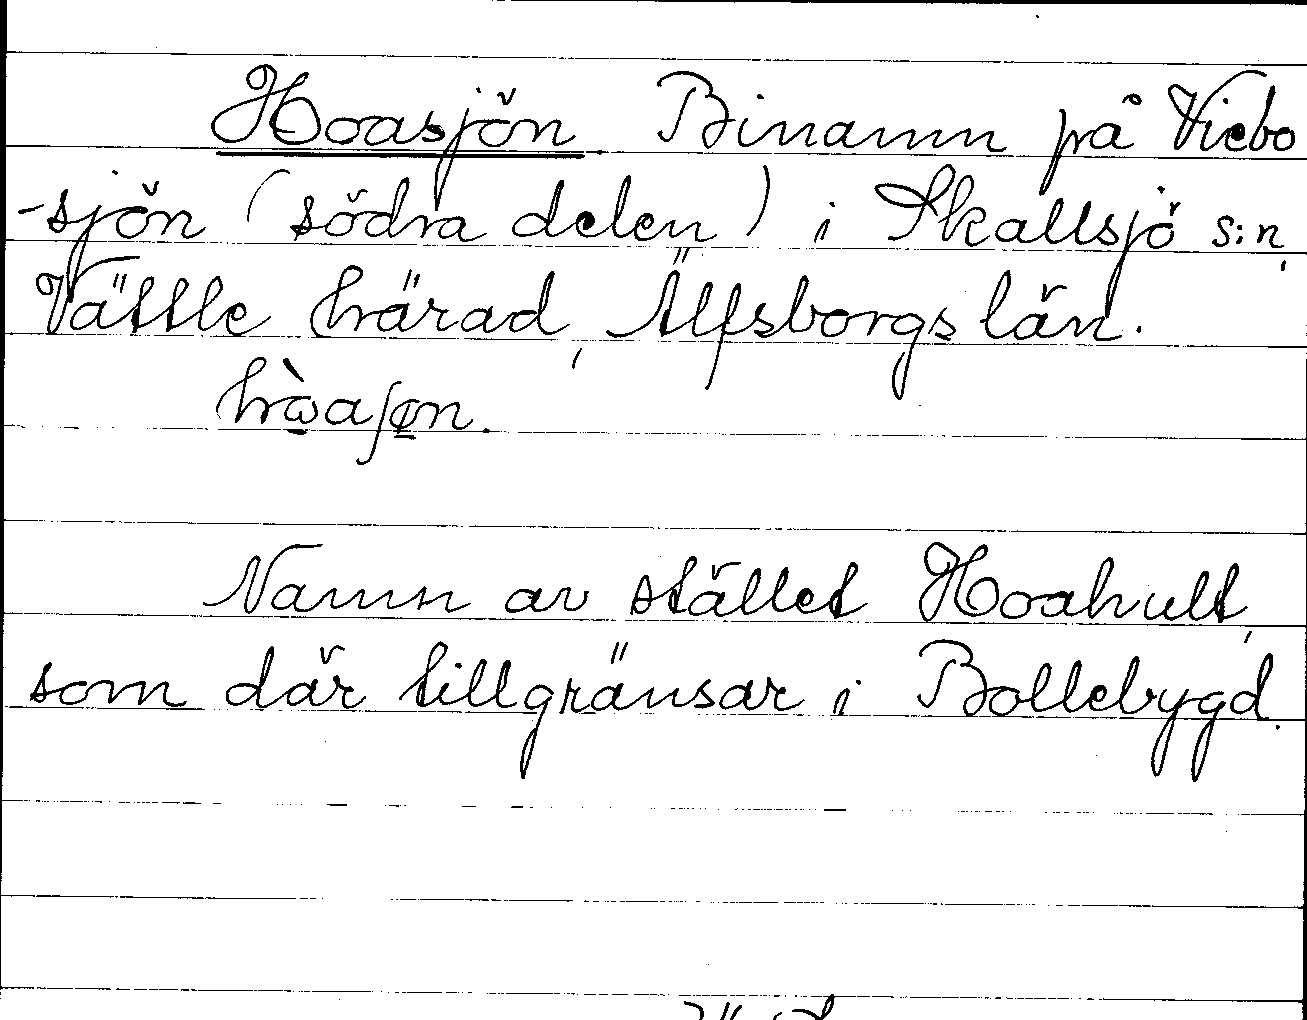 Hoasjön. Binamn på Viebo
-sjön (södra delen) i Skallsjö s:n,
Vättle härad, Älfsborgs län.
hὼaʃøn.
Namn av stället Hoahult,
som där tillgränsar i Bollebygd.